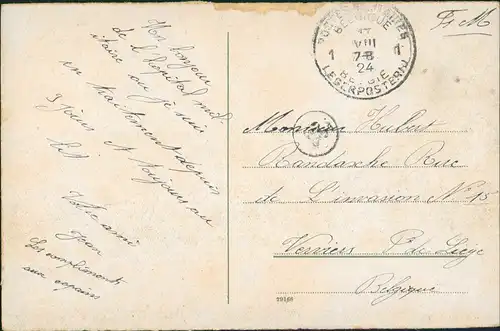 Mon bonjour
de l'hopital mil
itaire ou je suis
en traitement depuis
3 jours et toujours au
lit
Votre ami
Jean
Les compliments
aux copains
F. M
POSTES MILITAIRES
BELGIQUE
1 VIII 1
7-8
24
BELGIE
LEGERPOSTERIJ
Monsieur Hubert
Randaxhe Rue
de l'invasion No 15
Verviers P. de Liège
Belgique